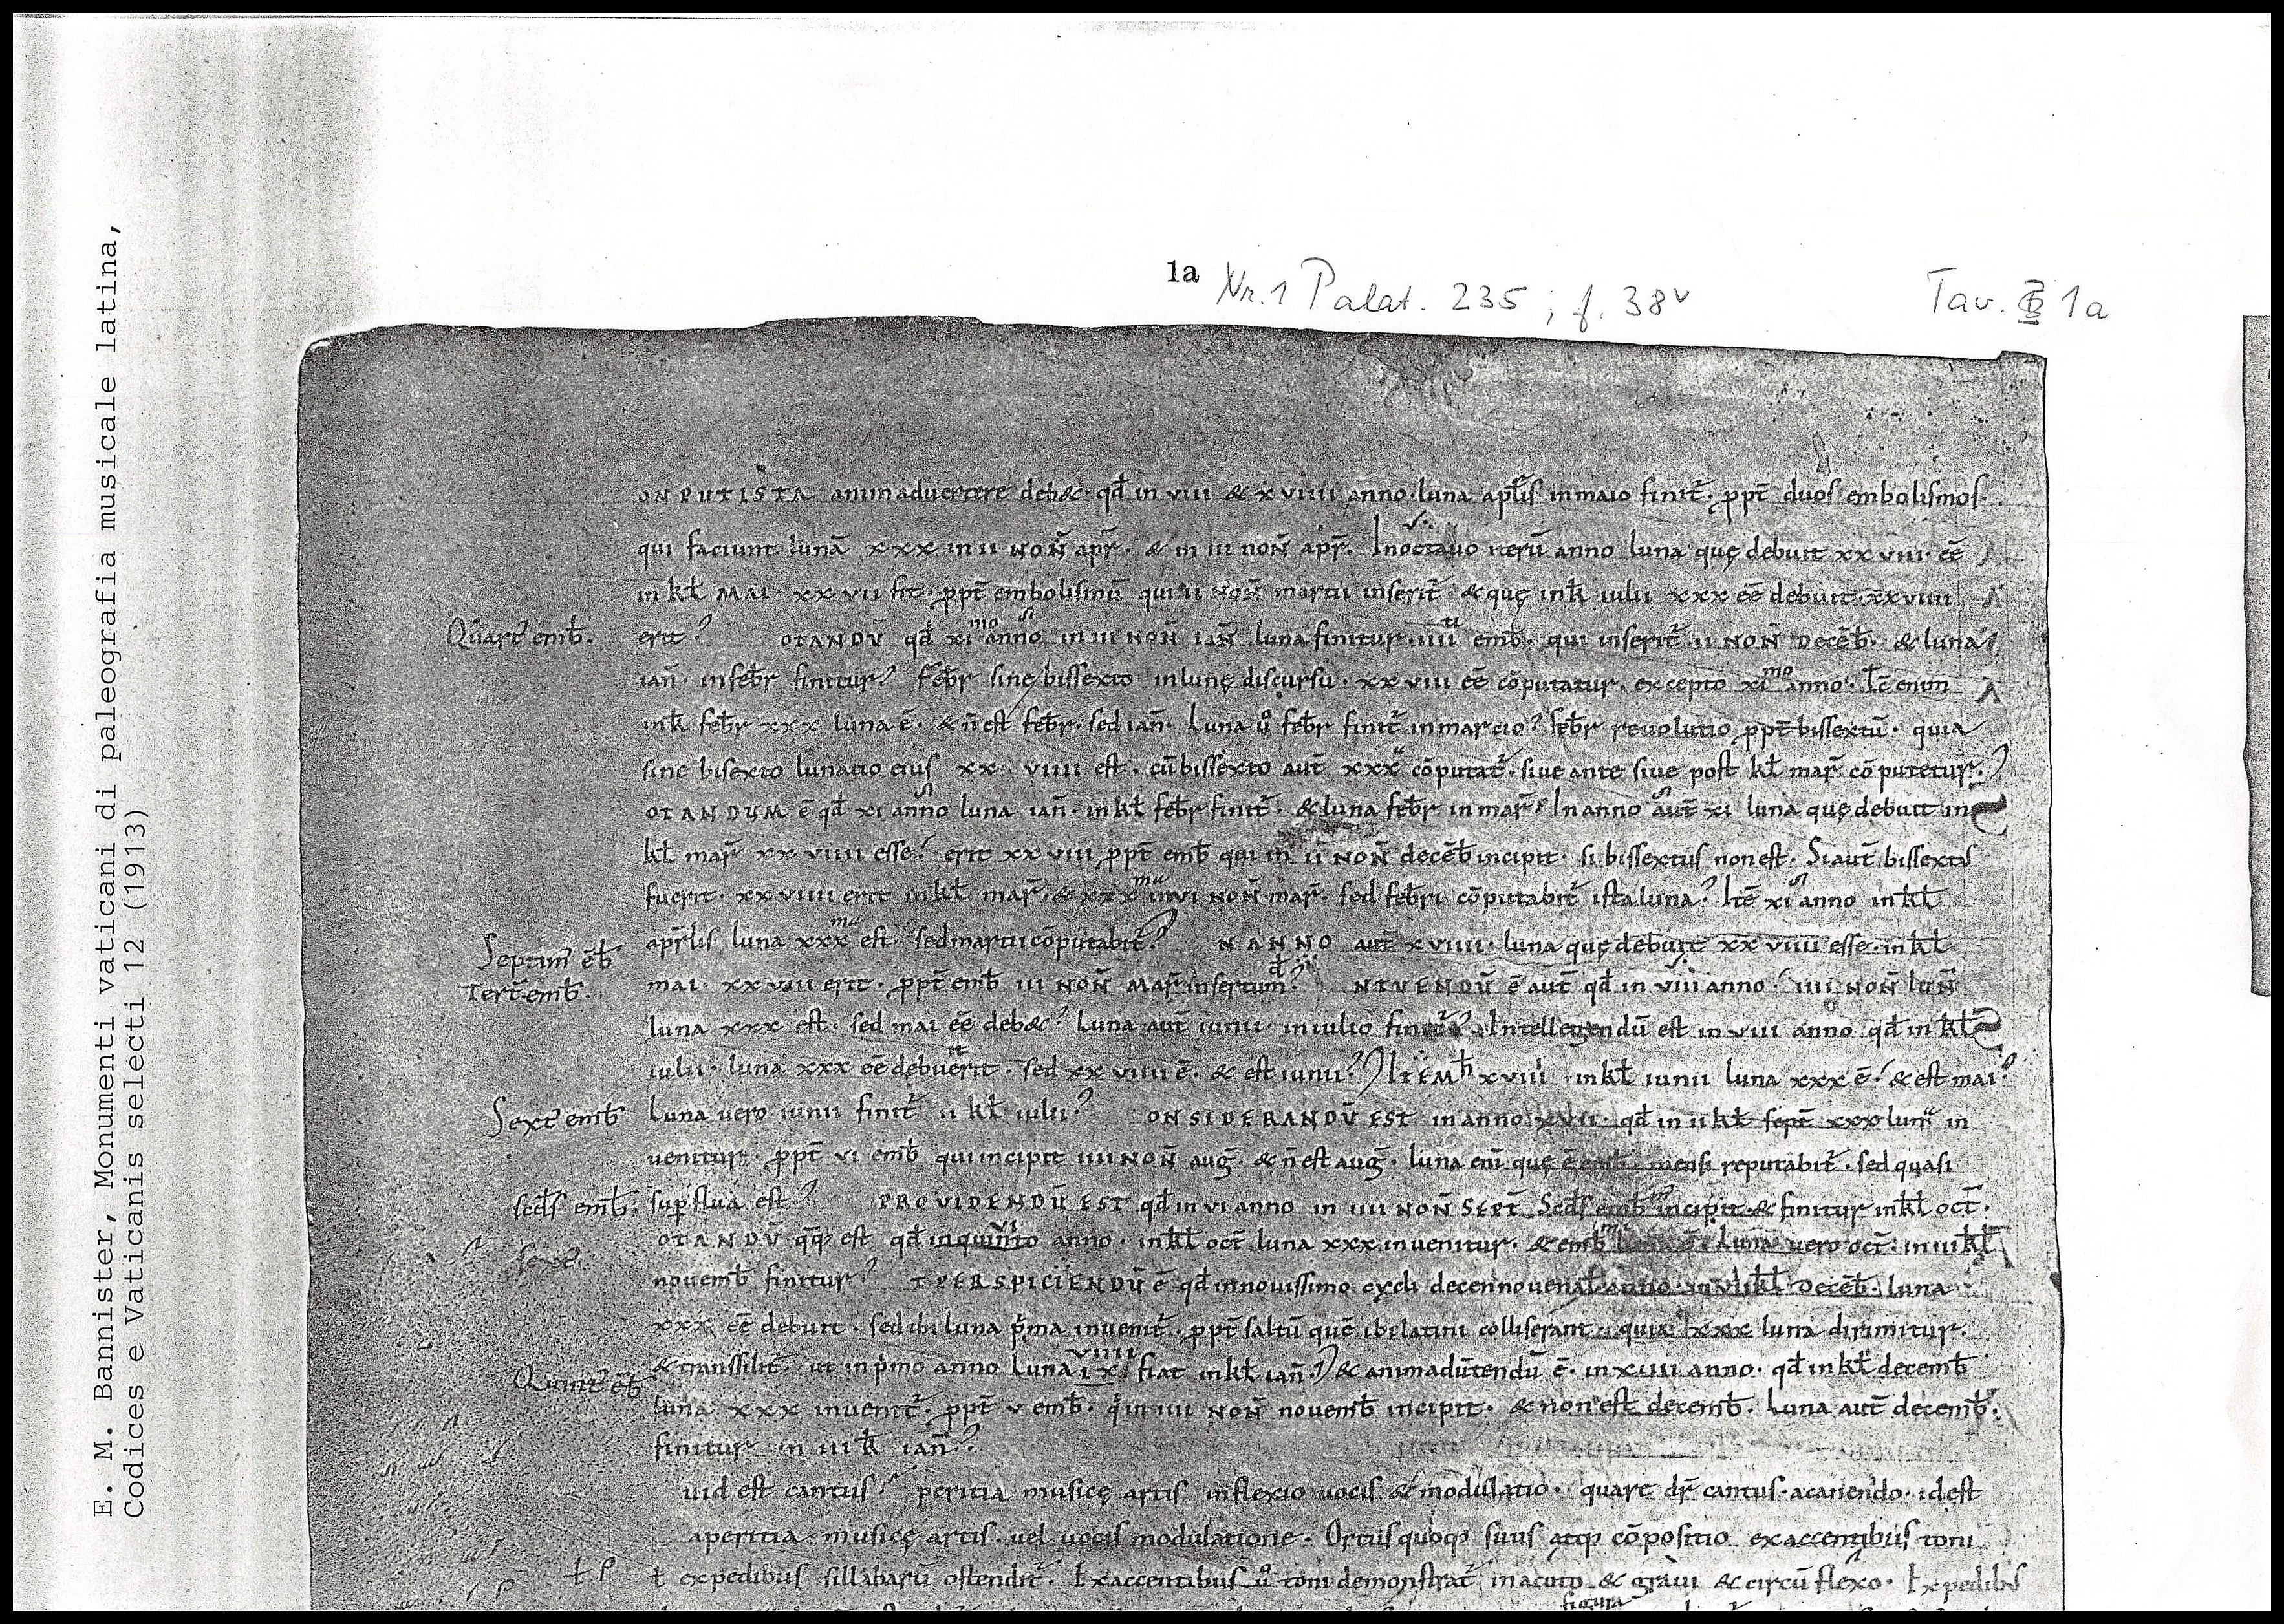 E. M. Bannister, Monumenti vaticani di paleografia musicale latina,
Codices e Vaticanis selecti 12 (1913)
1a Nr. 1 Palat. 235 ; f. 38v
Tav. 1a
ONPUTISTA animaduertere deb&· qđ in viii & xviiii anno· luna aplis in maio finit̄· ppt̄ duos embolismos·
qui faciunt lunā xxx in ii NOÑ apr̄· & in iii noñ apr̄. In octauo uerū anno luna quę debuit xxviii· eē
in kł MAI· xxvii fit· ppt̄ embolismū qui ii NOÑ martii inserit̄· & quę in kł iulii xxx eē debuit· xxviiii
Quart' emb̄.
erit? OTANDŪ qđ xi mo anno in iii NOÑ IAÑ luna finitur· iiii emb̄· qui inserit̄· ii NOÑ DECEB̄· & luna
iañ· in feb̄r finitur? Feb̄r sine bissexto in lunę discursu· xxviii eē cōputatur· excepto xi mo anno· Ic̄ enim
in kł feb̄r xxx luna ē· & ñ est feb̄r· sed iañ· Luna ů feb̄r finit̄ in marcio? feb̄r reuolutio ppt̄ bissextū· quia
sine bisexto lunatio eius xx viiii est· cū bissexto aut̄ xxx cōputat̄· siue ante siue post kł mar̄ cōputetur·?
OTANDUM ē qđ xi anno luna iañ· in kł feb̄r finit̄· & luna feb̄r in mar̄· In anno aut̄ xi luna quę debuit in
kł mar̄ xxviiii esse? erit xxviii ppt̄ emb̄ qui in ii NOÑ deceb̄ incipit· si bissextus non est· Si aut̄ bissextus
fuerit· xxviiii erit in kł mar̄· & xxx ma in vi NOÑ mar̄· sed febri cōputabit̄ ista luna? Itē xi anno in kł
aprlis luna xxx ma est· sed martii cōputabit̄? N ANNO aut̄ xviiii· luna quę debuit xxviiii esse· in kł
Septim' ēb̄
Tert̄· emb̄.
mai· xxviii erit· ppt̄ emb̄ iii NOÑ MAR̄ insertum? NTUENDŪ ē aut̄ qđ in viii anno· iiii NOÑ IUÑ
luna xxx est· sed mai eē deb&? Luna aut̄ iunii· in iulio finit̄? Intellegendū est in viii anno qđ in kł
iulii· luna xxx eē debuerit· sed xxviiii ē· & est iunii? ITEM xviii in kł iunii luna xxx ē? & est mai?
Sext' emb̄
Luna uero iunii finit̄ ii kł iulii? ONSIDERANDŪ EST in anno xvii· qđ in ii kł sept̄ xxx luna in
uenitur· ppt̄ vi emb̄ qui incipit iiii NOÑ aug̅· & ñ est aug̅· luna eni quę ē emb̄· mensi reputabit̄· sed quasi
scds emb̄:
supflua est? PROVIDENDŪ EST qđ in vi anno in iiii NOÑ SEPT̄ Scds emb̄ incipit & finitur in kł oct̄·
OTANDŪ qq̄ est qđ in quinto vi anno· in kł oct̄ luna xxx inuenitur· & emb̄ luna ē· Luna uero oct̄· in iii kł
nouemb̄ finitur? TPERSPICIENDŪ ē qđ in nouissimo cycli decennouenal anno· in kł DECEB̄· luna
xxx eē debuit· sed ibi luna pma inuenit̄· ppt̄ saltū quē ibi latini colliserant· quia xxx luna dirimitur·
& transsilit̄· ut in pmo anno luna ix viiii fiat in kł iañ·? & animadūtendū ē· in xiiii anno· qđ in kł decemb̄
Quint' ēb̄
luna xxx inuenit̄· ppt̄ v emb̄· q in iiii NOÑ nouemb̄ incipit· & non est decemb̄· Luna aut̄ decemb̄·
finitur in iii k̄ iañ?
uid est cantus? peritia musicę artis inflexio uocis & modulatio· quare dr̄ cantus· a canendo· id est
a peritia musicę artis· uel uocis modulatione· Ortus quoq; suus atq; cōpositio ex accentibus toni
ł ex pedibus sillabarū ostendit̄· Ex accentibus ů toni demonstrat̄ in acuto & graui & circūflexo· Ex pedibus
figura